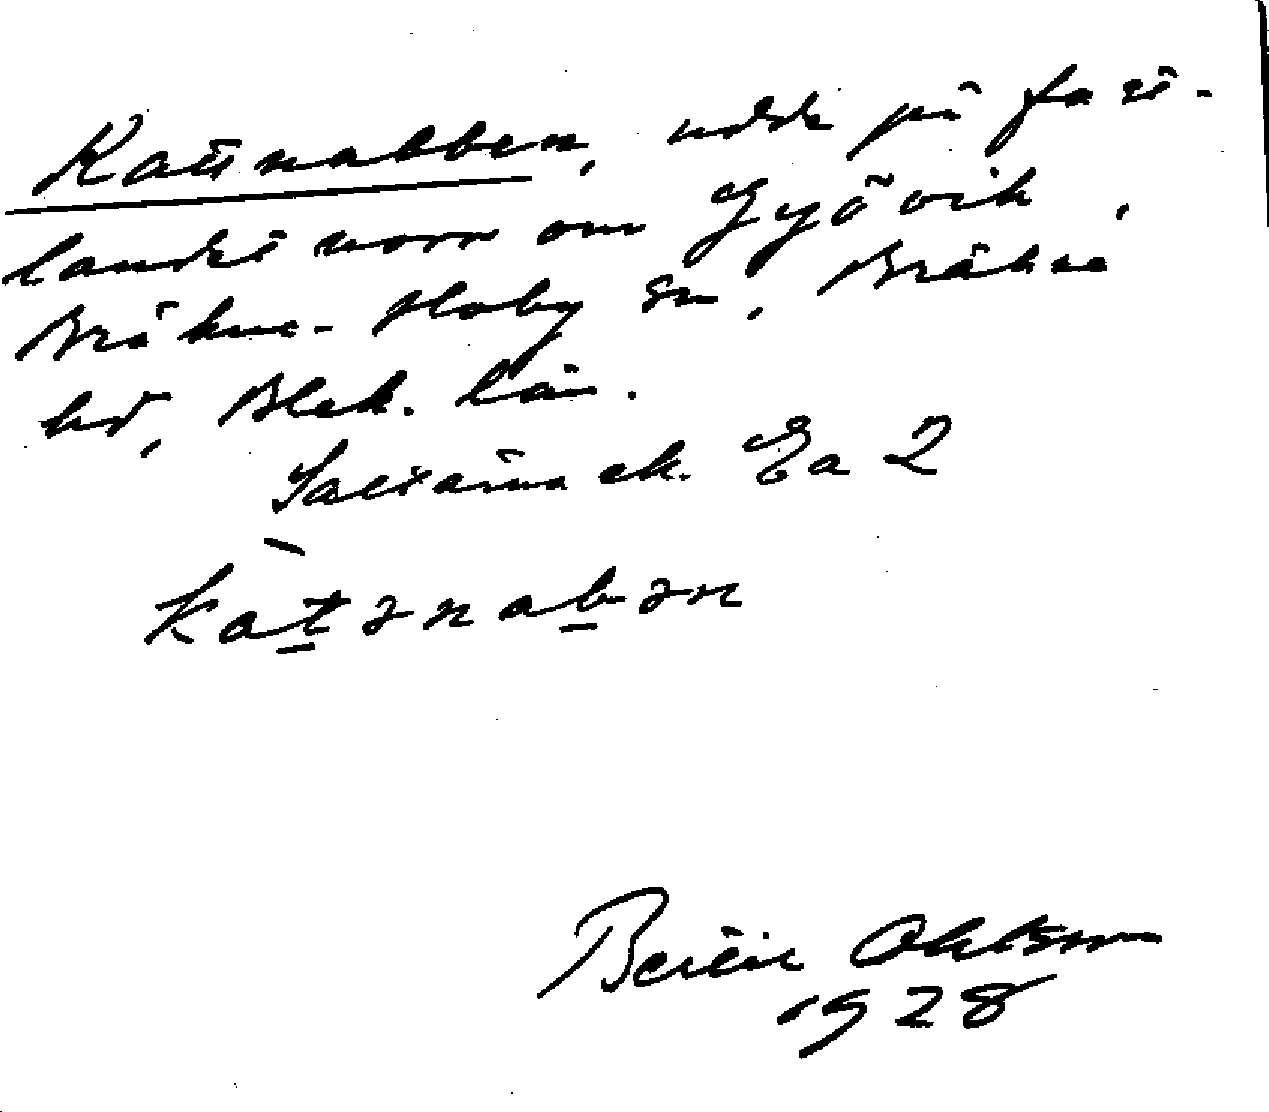 Kattnabben, udde på fast-
landet norr om Gyövik,
Bräkne-Hoby sn, Bräkne
hd, Blek. län.
Saltsjöns ek. Ea 2
kat̲ənab̲ən
Bertil Ohlson
1928